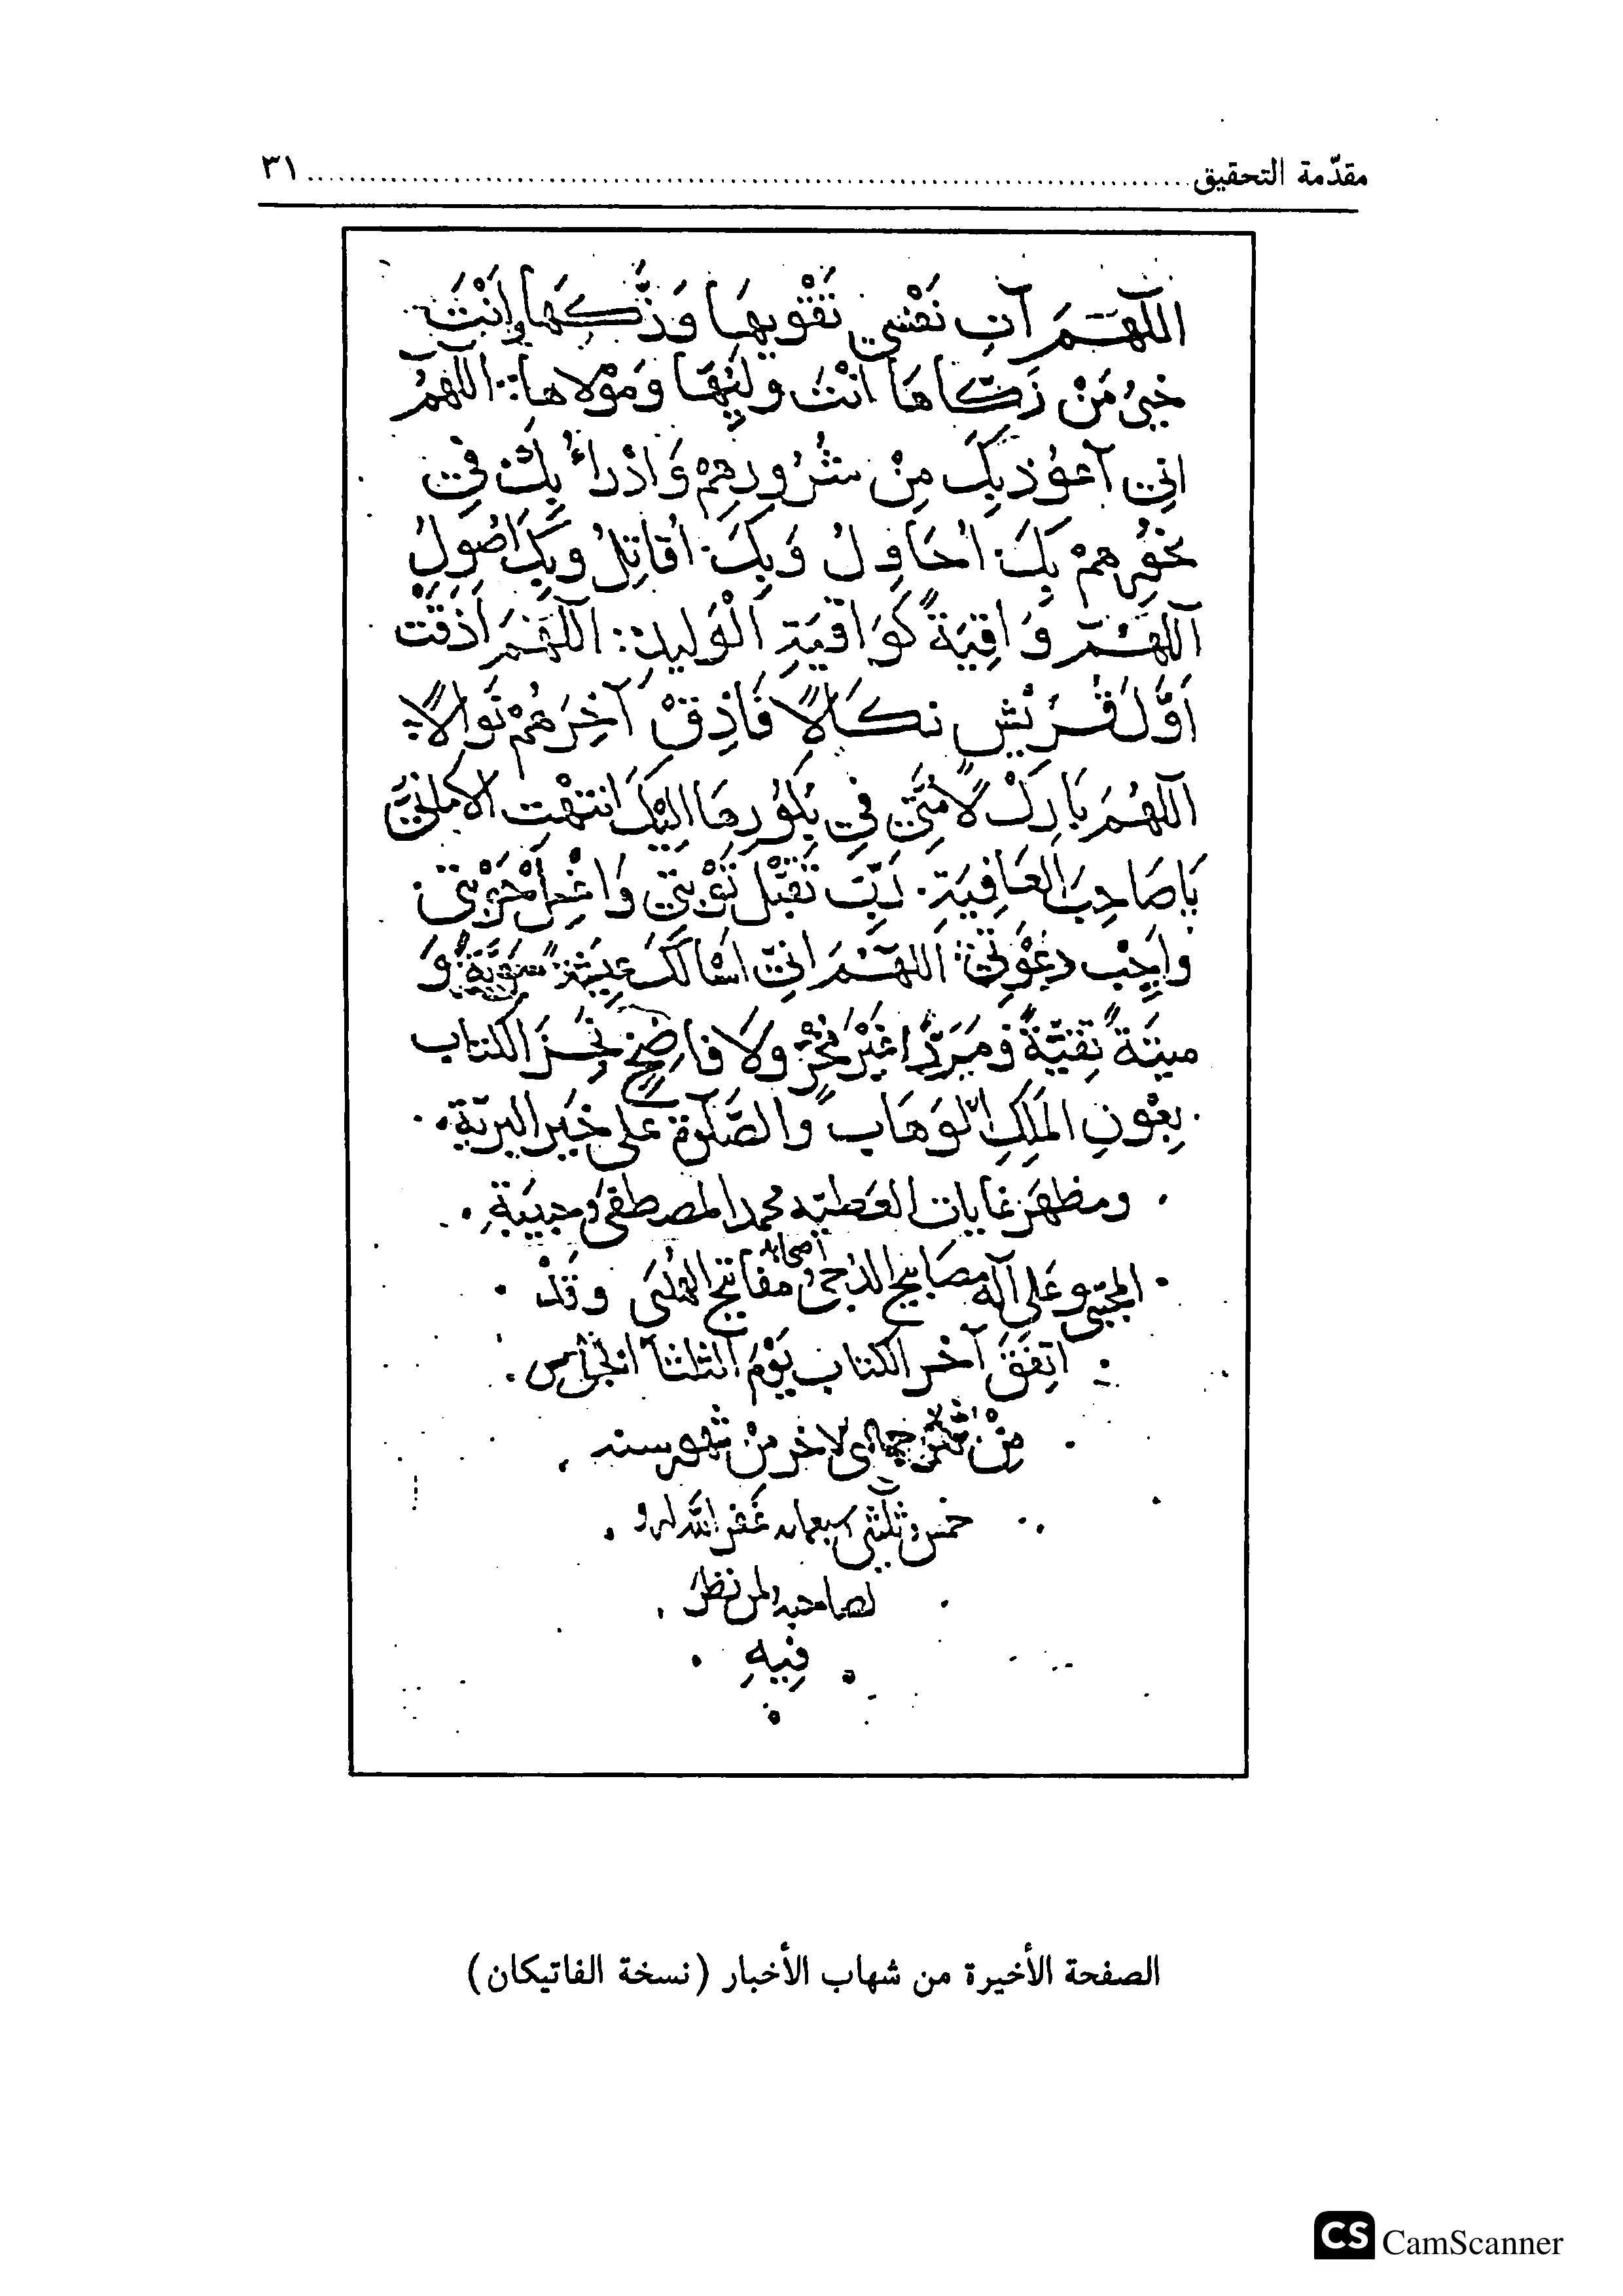 مقدّمة التحقيق ........ ٣١
اللَّهُمَّ آتِ نَفْسِي تَقْوٰيهَا وَزَكِّهَا وَأَنْتَ
خَيْرُ مَنْ زَكَّاهَا أَنْتَ وَلِيُّهَا وَمَوْلَاهَا اللَّهُمَّ
اِنِّي أَعُوذُ بِكَ مِنْ شُرُورِهِمْ وَأَدْرَأُ بِكَ فِي
نُحُورِهِمْ بِكَ اُحَاوِلُ وَبِكَ اُقَاتِلُ وَبِكَ اَصُولُ
اَللَّهُمَّ وَاقِيَةً كَوَاقِيَةِ الْوَلِيدِ اَللَّهُمَّ اَذَقْتَ
اَوَّلَ قُرَيْشٍ نَكَالًا فَاَذِقْ آخِرَهُمْ نَوَالًا
اَللَّهُمَّ بَارِكْ لِاُمَّتِي فِي بُكُورِهَا اِلَيْكَ انْتَهَتِ الْاَمَانِيُّ
يَا صَاحِبَ الْعَافِيَةِ رَبِّ تَقَبَّلْ تَوْبَتِي وَاغْسِلْ حَوْبَتِي
وَاَجِبْ دَعْوَتِي اَللَّهُمَّ اِنِّي اَسْأَلُكَ عِيشَةً سَوِيَّةً وَ
مِيتَةً نَقِيَّةً وَمَرَدًّا غَيْرَ مُخْزٍ وَلَا فَاضِحٍ نَجِزَ الْكِتَاب
بِعَوْنِ الْمَلِكِ الْوَهَّابِ وَالصَّلٰوةُ عَلى خَيْرِ الْبَرِيَّةِ
وَمَظْهَرِ غَايَات العَطِيَّه محمد المصطفى وَحبيبِهِ
المجتبى وَعَلى آله مصابيح الدجى واصحابه مفاتيح الهُدَى وَقَدْ
اتَّفَقَ آخر الكتاب يَوْمَ الثلثآ الخامس
مِنْ جمادى الاخر مِنْ شهور سنه
خمس وثلثين سبعمايه غَفَرَ اللّٰه له و
لصاحبه ولمن نظر
فِيهِ
الصفحة الأخيرة من شهاب الأخبار (نسخة الفاتيكان)
CS CamScanner